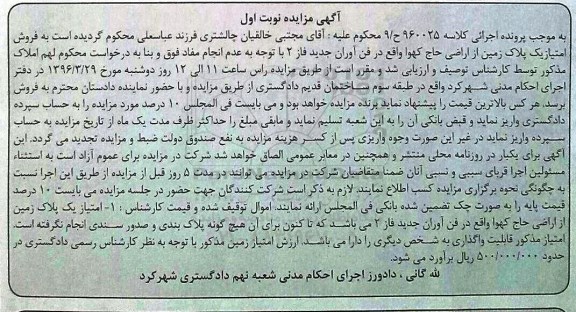 آگهی مزایده نوبت اول
به موجب پرونده اجرائی کلاسه ۹۶۰۰۲۵ ح/۹ محکوم علیه : آقای مجتبی خالقیان چالشتری فرزند عباسعلی محکوم گردیده است به فروش
امتیازیک پلاک زمین از اراضی حاج کهوا واقع در فن آوران جدید فاز ۲ با توجه به عدم انجام مفاد فوق و بنا به درخواست محکوم لهم املاک
مذکور توسط کارشناس توصیف و ارزیابی شد و مقرر است از طریق مزایده راس ساعت ۱۱ الی ۱۲ روز دوشنبه مورخ ۱۳۹۶/۳/۲۹ در دفتر
اجرای احکام مدنی شهرکرد واقع در طبقه سوم ساختمان قدیم دادگستری از طریق مزایده و با حضور نماینده دادستان محترم به فروش
برسد. هر کس بالاترین قیمت را پیشنهاد نماید برنده مزایده خواهد بود و می بایست فی المجلس ۱۰ درصد مورد مزایده را به حساب سپرده
دادگستری واریز نماید و قبض بانکی آن را به این شعبه تسلیم نماید و مابقی مبلغ را حداکثر ظرف مدت یک ماه از تاریخ مزایده به حساب
سپرده واریز نماید در غیر این صورت وجوه واریزی پس از کسر هزینه مزایده به نفع صندوق دولت ضبط و مزایده تجدید می گردد. این
آگهی برای یکبار در روزنامه محلی منتشر و همچنین در معابر عمومی الصاق خواهد شد شرکت در مزایده برای عموم آزاد است به استثناء
مسئولین اجرا قربای سببی و نسبی آنان ضمنا متقاضیان شرکت در مزایده می توانند در مدت ۵ روز قبل از مزایده از طریق این اجرا نسبت
به چگونگی نحوه برگزاری مزایده کسب اطلاع نمایند. لازم به ذکر است شرکت کنندگان جهت حضور در جلسه مزایده می بایست ۱۰ درصد
قیمت پایه را به صورت چک تضمین شده بانکی فی المجلس ارائه نمایند. اموال توقیف شده و قیمت کارشناس : ۱- امتیاز یک پلاک زمین
از اراضی حاج کهوا واقع در فن آوران جدید فاز ۲ می باشد که تا کنون برای آن هیچ گونه پلاک بندی و صدور سندی انجام نگرفته است.
امتیاز مذکور قابلیت واگذاری به شخص دیگری را دارا می باشد. ارزش امتیاز زمین مذکور با توجه به نظر کارشناس رسمی دادگستری در
حدود ۵۰۰/۰۰۰/۰۰۰ ریال برآورد می شود.
لله گانی ، دادورز اجرای احکام مدنی شعبه نهم دادگستری شهرکرد